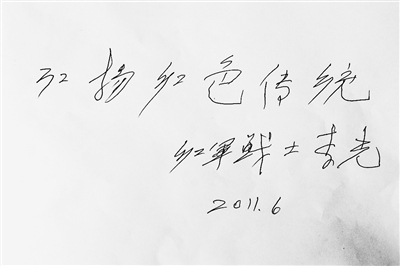 弘扬红色传统
红军战士李光
2011.6